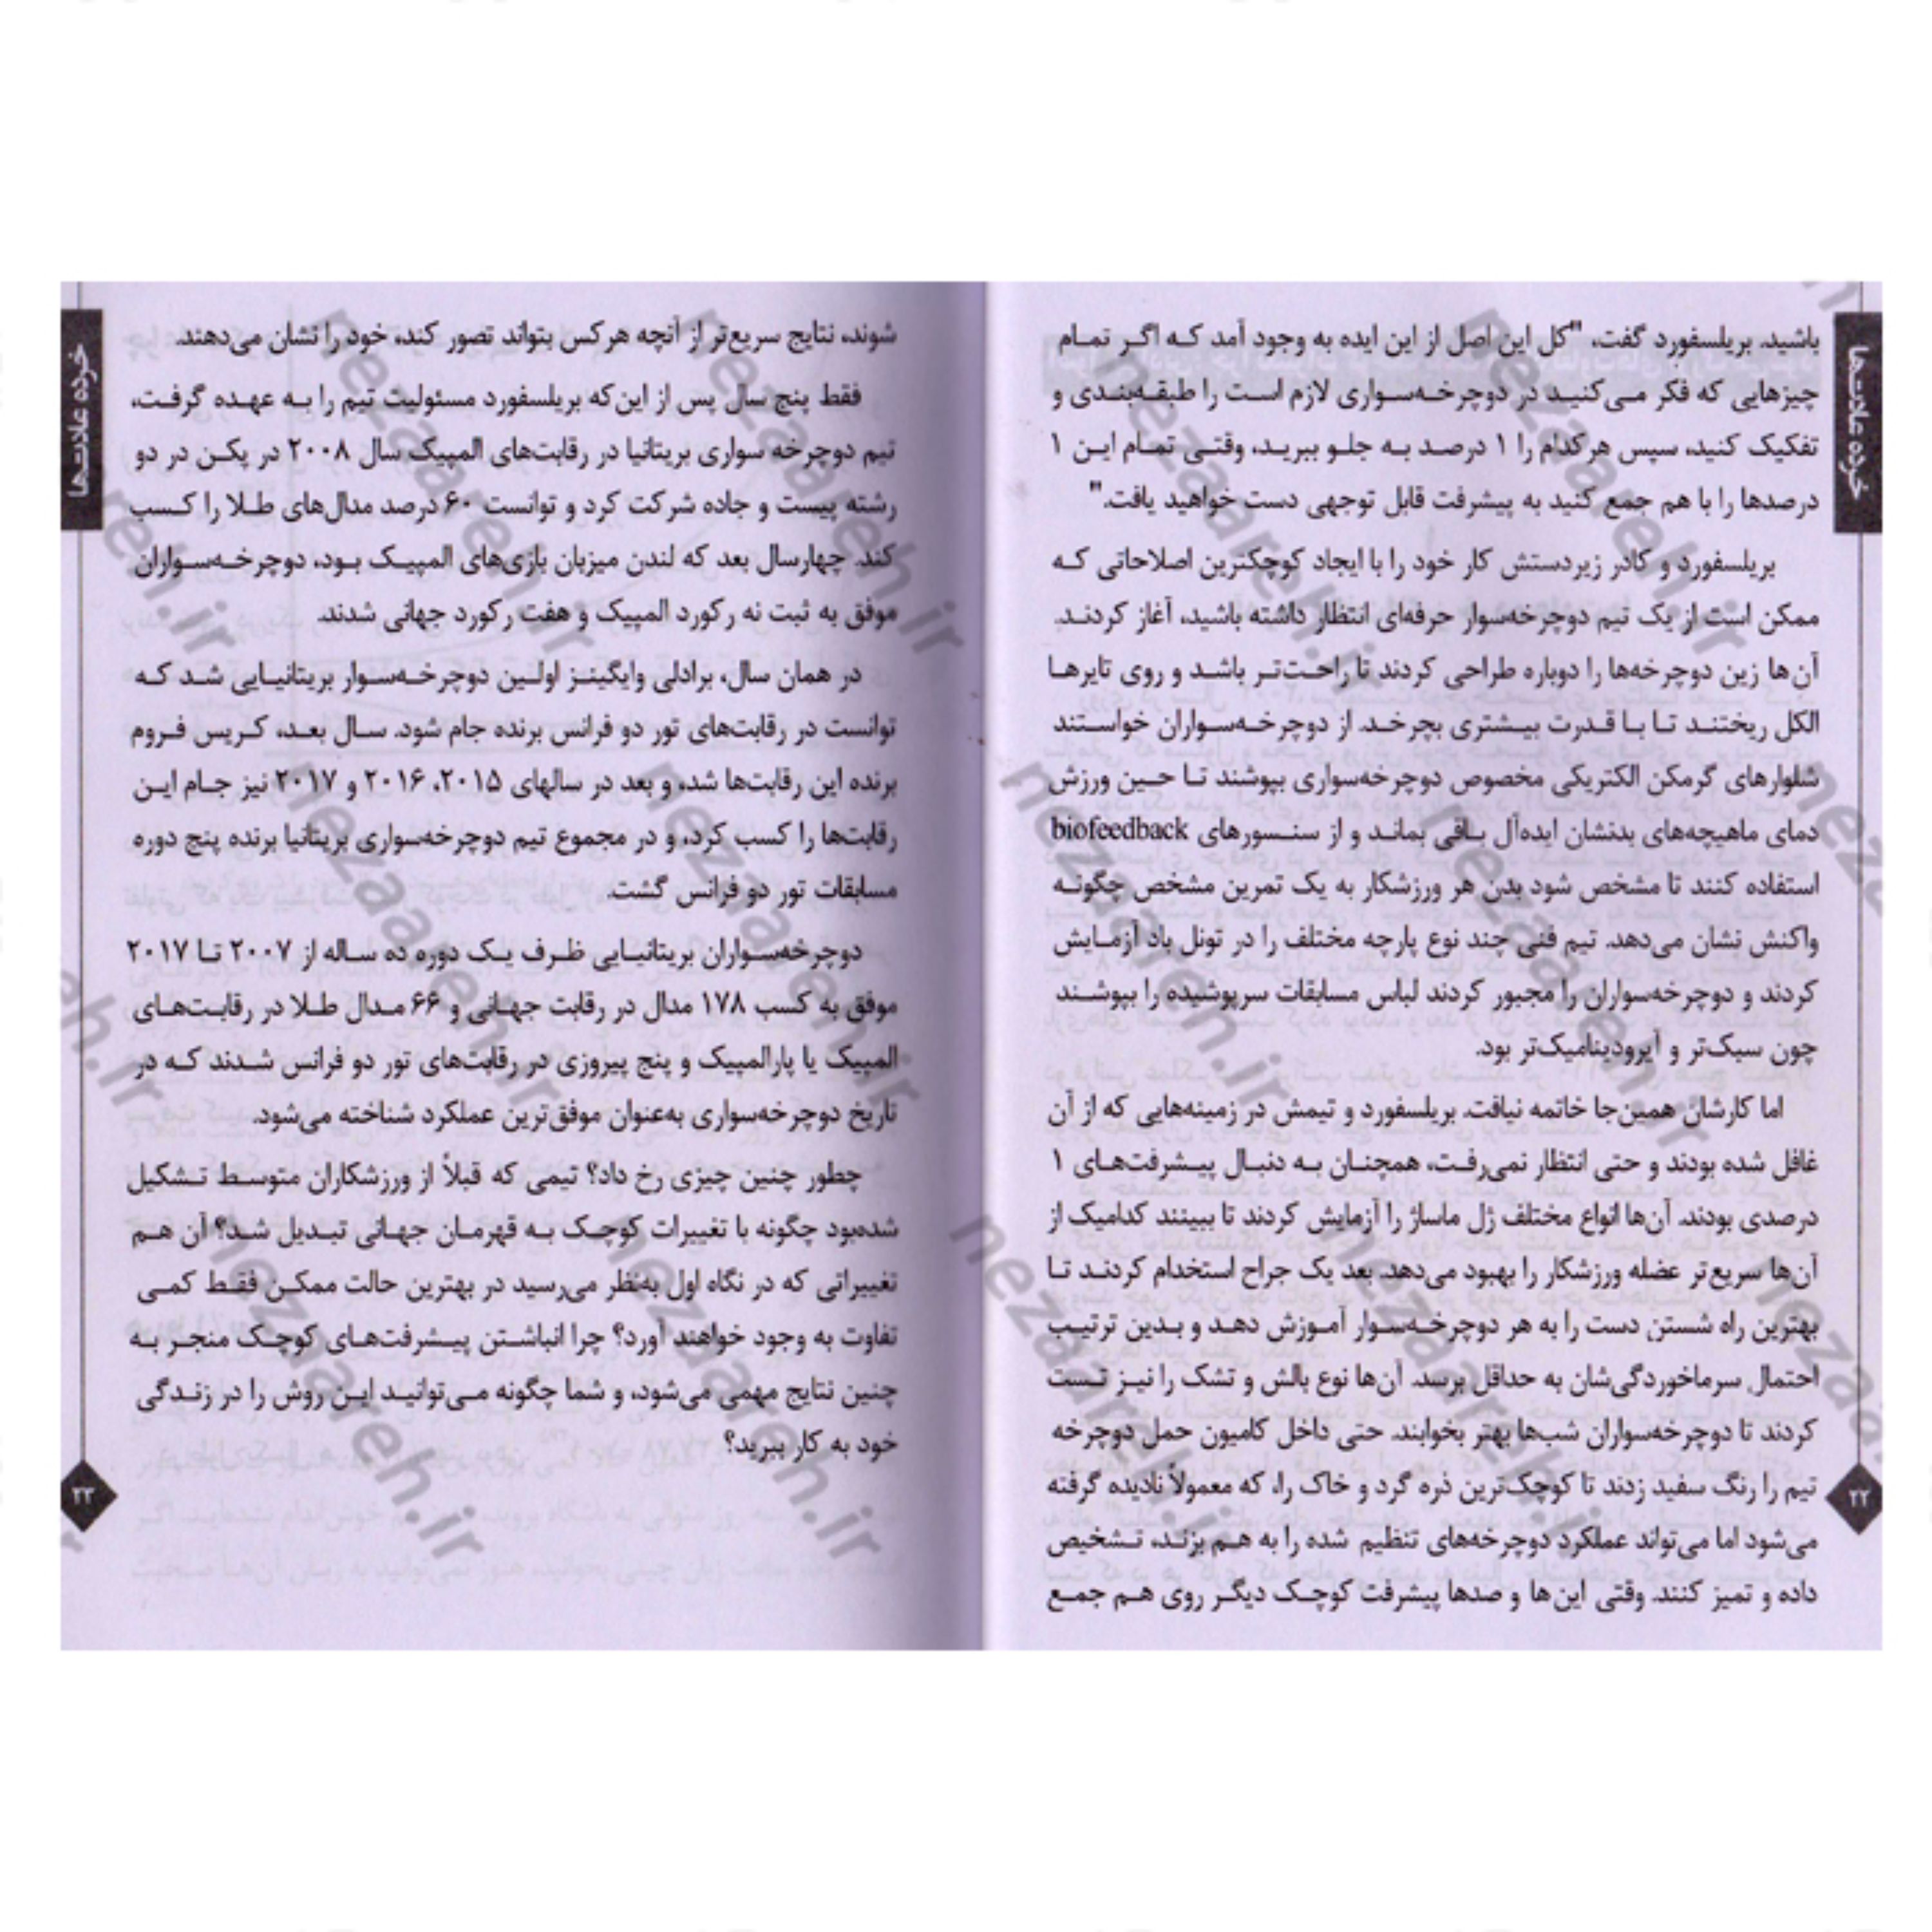 خرده عادت‌ها
باشید. بریلسفورد گفت، "کل این اصل از این ایده به وجود آمد که اگر تمام
چیزهایی که فکر می‌کنید در دوچرخه‌سواری لازم است را طبقه‌بندی و
تفکیک کنید، سپس هرکدام را ۱ درصد به جلو ببرید، وقتی تمام این ۱
درصدها را با هم جمع کنید به پیشرفت قابل توجهی دست خواهید یافت."
بریلسفورد و کادر زیردستش کار خود را با ایجاد کوچکترین اصلاحاتی که
ممکن است از یک تیم دوچرخه‌سوار حرفه‌ای انتظار داشته باشید، آغاز کردند.
آن‌ها زین دوچرخه‌ها را دوباره طراحی کردند تا راحت‌تر باشد و روی تایرها
الکل ریختند تا با قدرت بیشتری بچرخد. از دوچرخه‌سواران خواستند
شلوارهای گرمکن الکتریکی مخصوص دوچرخه‌سواری بپوشند تا حین ورزش
دمای ماهیچه‌های بدنشان ایده‌آل باقی بماند و از سنسورهای biofeedback
استفاده کنند تا مشخص شود بدن هر ورزشکار به یک تمرین مشخص چگونه
واکنش نشان می‌دهد. تیم فنی چند نوع پارچه مختلف را در تونل باد آزمایش
کردند و دوچرخه‌سواران را مجبور کردند لباس مسابقات سرپوشیده را بپوشند
چون سبک‌تر و آیرودینامیک‌تر بود.
اما کارشان همین‌جا خاتمه نیافت. بریلسفورد و تیمش در زمینه‌هایی که از آن
غافل شده بودند و حتی انتظار نمی‌رفت، همچنان به دنبال پیشرفت‌های ۱
درصدی بودند. آن‌ها انواع مختلف ژل ماساژ را آزمایش کردند تا ببینند کدامیک از
آن‌ها سریع‌تر عضله ورزشکار را بهبود می‌دهد. بعد یک جراح استخدام کردند تا
بهترین راه شستن دست را به هر دوچرخه‌سوار آموزش دهد و بدین ترتیب
احتمال سرماخوردگی‌شان به حداقل برسد. آن‌ها نوع بالش و تشک را نیز تست
کردند تا دوچرخه‌سواران شب‌ها بهتر بخوابند. حتی داخل کامیون حمل دوچرخه
تیم را رنگ سفید زدند تا کوچک‌ترین ذره گرد و خاک را، که معمولاً نادیده گرفته
می‌شود اما می‌تواند عملکرد دوچرخه‌های تنظیم شده را به هم بزند، تشخیص
داده و تمیز کنند. وقتی این‌ها و صدها پیشرفت کوچک دیگر روی هم جمع
۲۲
خرده عادت‌ها
شوند، نتایج سریع‌تر از آنچه هرکس بتواند تصور کند، خود را نشان می‌دهند.
فقط پنج سال پس از این‌که بریلسفورد مسئولیت تیم را به عهده گرفت،
تیم دوچرخه سواری بریتانیا در رقابت‌های المپیک سال ۲۰۰۸ در پکن در دو
رشته پیست و جاده شرکت کرد و توانست ۶۰ درصد مدال‌های طلا را کسب
کند. چهارسال بعد که لندن میزبان بازی‌های المپیک بود، دوچرخه‌سواران
موفق به ثبت نه رکورد المپیک و هفت رکورد جهانی شدند.
در همان سال، برادلی وایگینز اولین دوچرخه‌سوار بریتانیایی شد که
توانست در رقابت‌های تور دو فرانس برنده جام شود. سال بعد، کریس فروم
برنده این رقابت‌ها شد، و بعد در سالهای ۲۰۱۵، ۲۰۱۶ و ۲۰۱۷ نیز جام این
رقابت‌ها را کسب کرد، و در مجموع تیم دوچرخه‌سواری بریتانیا برنده پنج دوره
مسابقات تور دو فرانس گشت.
دوچرخه‌سواران بریتانیایی ظرف یک دوره ده ساله از ۲۰۰۷ تا ۲۰۱۷
موفق به کسب ۱۷۸ مدال در رقابت جهانی و ۶۶ مدال طلا در رقابت‌های
المپیک یا پارالمپیک و پنج پیروزی در رقابت‌های تور دو فرانس شدند که در
تاریخ دوچرخه‌سواری به‌عنوان موفق‌ترین عملکرد شناخته می‌شود.
چطور چنین چیزی رخ داد؟ تیمی که قبلاً از ورزشکاران متوسط تشکیل
شده‌بود چگونه با تغییرات کوچک به قهرمان جهانی تبدیل شد؟ آن هم
تغییراتی که در نگاه اول به‌نظر می‌رسید در بهترین حالت ممکن فقط کمی
تفاوت به وجود خواهند آورد؟ چرا انباشتن پیشرفت‌های کوچک منجر به
چنین نتایج مهمی می‌شود، و شما چگونه می‌توانید این روش را در زندگی
خود به کار ببرید؟
۲۳
nezaareh.ir